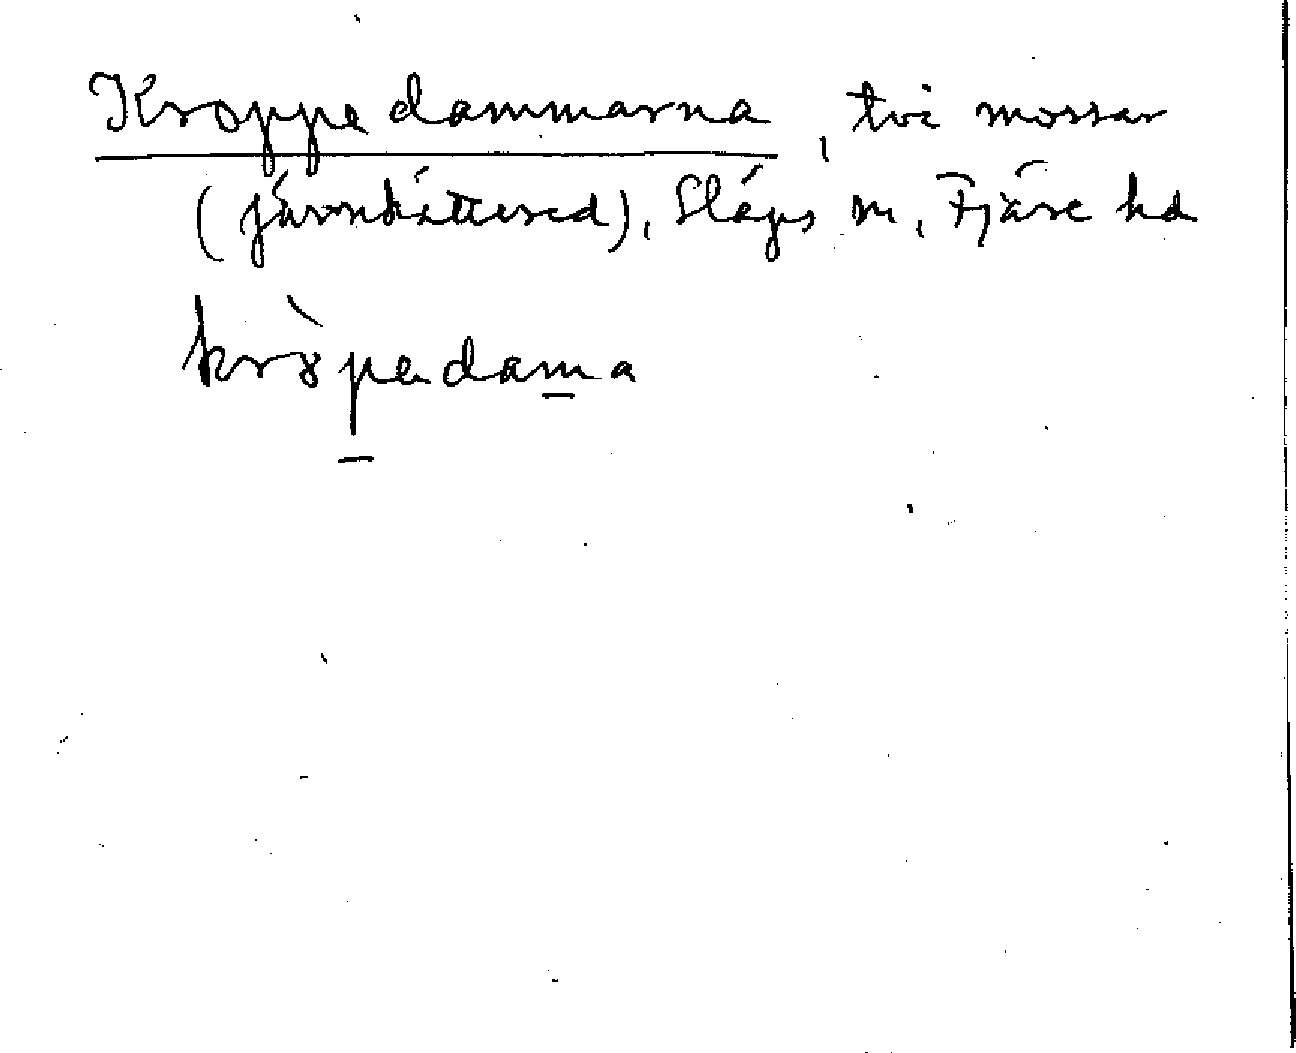 Kroppedammarna, två mossar
(järnkåttered), Släps sn, Fjäre hd
kròpedama